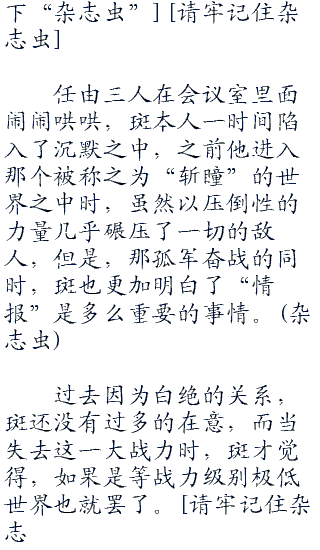 下“杂志虫”][请牢记住杂
志虫]
任由三人在会议室里面
闹闹哄哄，斑本人一时间陷
入了沉默之中，之前他进入
那个被称之为“斩瞳”的世
界之中时，虽然以压倒性的
力量几乎碾压了一切的敌
人，但是，那孤军奋战的同
时，斑也更加明白了“情
报”是多么重要的事情。(杂
志虫)
过去因为白绝的关系，
斑还没有过多的在意，而当
失去这一大战力时，斑才觉
得，如果是等战力级别极低
世界也就罢了。[请牢记住杂
志